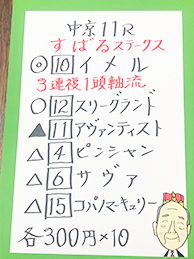 中京11R
すばるステークス
◎10イメル
3連複1頭軸流
○12スリーグランド
▲11アヴァンティスト
△4ピンシャン
△6サヴァ
△15コパノマーキュリー
各300円×10